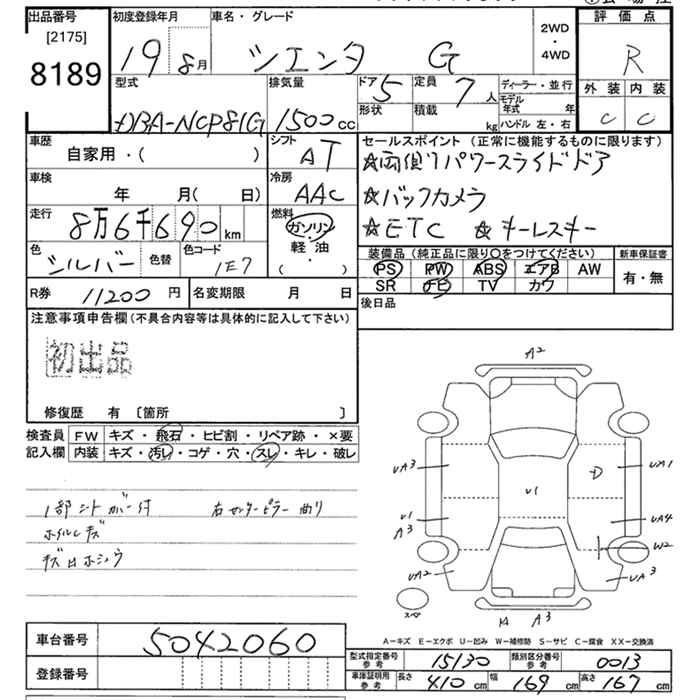 出品番号
[2175]
8189
初度登録年月
19年 8月
車名・グレード
シエンタ G
2WD
・
4WD
評価点
R
型式
DBA-NCP81G
排気量
1500cc
ドア 5
定員 7人
形状
積載 kg
ディーラー・並行
モデル年式 年
ハンドル 左・右
外装 内装
C C
車歴
自家用・( )
シフト
AT
車検
年 月( 日)
冷房
AAC
走行
8万6千690km
燃料
ガソリン
軽・油
( ・ )
色
シルバー
色替
色コード
1E7
セールスポイント (正常に機能するものに限ります)
☆両側パワースライドドア
☆バックカメラ
☆ETC ☆キーレスキー
装備品 (純正品に限り○をつけてください)
PS PW ABS エアB AW
SR ナビ TV カワ
新車保証書
有・無
R券 11200円
名変期限 月 日
後日品
注意事項申告欄 (不具合内容等は具体的に記入して下さい)
初出品
修復歴 有 〔箇所 〕
検査員記入欄
FW キズ・飛石・ヒビ割・リペア跡・×要
内装 キズ・汚レ・コゲ・穴・スレ・キレ・破レ
1部シートカバー付 右センターピラー曲り
ホイルキズ
キズ凹ホシュウ
A2
UA3
U1
A3
UA2
U1
D
UA1
UA4
W2
UA3
スペア
A3
A-キズ E-エクボ U-凹み W-補修跡 S-サビ C-腐食 XX-交換済
車台番号
5042060
登録番号
型式指定番号 参考
15130
類別区分番号 参考
0013
車庫証明用 参考
長さ 410cm 幅 169cm 高さ 167cm